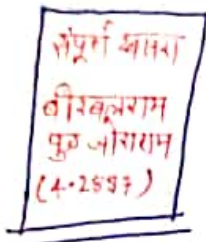 संपूर्ण खसरा
बीरबलराम
पुत्र जोराराम
(4.2597)